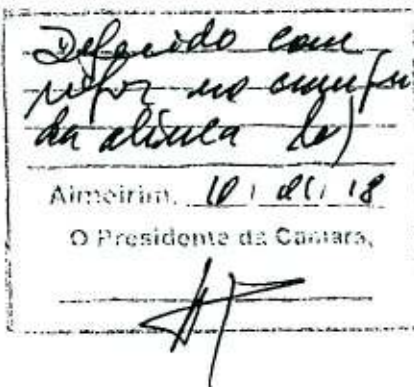 Deferido com
rigor no cumpri
da alínea b)
Almeirim, 10 / 01 / 18
O Presidente da Câmara,